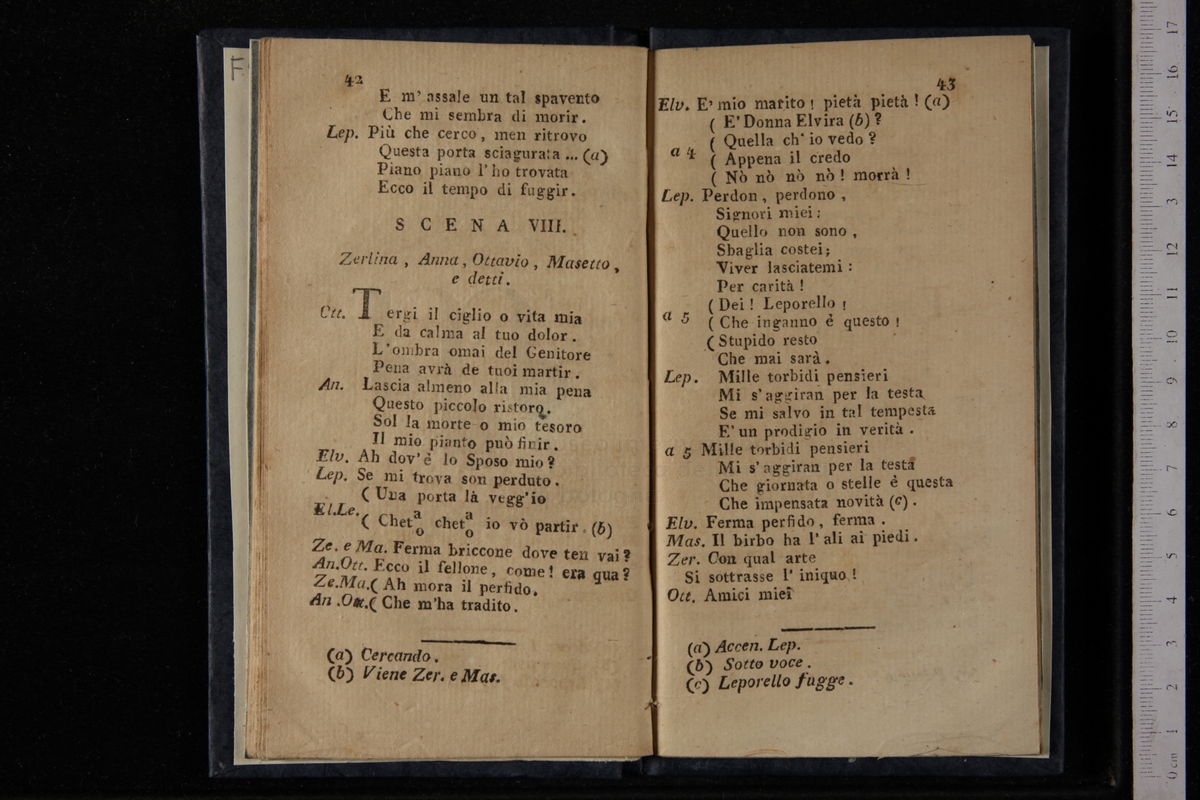 F
42
E m' assale un tal spavento
Che mi sembra di morir.
Lep. Più che cerco, men ritrovo
Questa porta sciagurata ... (a)
Piano piano l' ho trovata
Ecco il tempo di fuggir.
SCENA VIII.
Zerlina, Anna, Ottavio, Masetto,
e detti.
Ott. Tergi il ciglio o vita mia
E da calma al tuo dolor.
L'ombra omai del Genitore
Pena avrà de tuoi martir.
An. Lascia almeno alla mia pena
Questo piccolo ristoro.
Sol la morte o mio tesoro
Il mio pianto può finir.
Elv. Ah dov'è lo Sposo mio?
Lep. Se mi trova son perduto.
( Una porta là vegg'io
El.Le.
( Cheta/o cheta/o io vò partir. (b)
Ze. e Ma. Ferma briccone dove ten vai?
An.Ott. Ecco il fellone, come! era qua?
Ze.Ma.( Ah mora il perfido.
An.Ott.( Che m'ha tradito.
(a) Cercando.
(b) Viene Zer. e Mas.
43
Elv. E' mio marito! pietà pietà! (a)
( E' Donna Elvira (b)?
( Quella ch' io vedo?
a 4 ( Appena il credo
( Nò nò nò nò! morrà!
Lep. Perdon, perdono,
Signori miei:
Quello non sono,
Sbaglia costei;
Viver lasciatemi:
Per carità!
( Dei! Leporello!
a 5 ( Che inganno è questo!
( Stupido resto
Che mai sarà.
Lep. Mille torbidi pensieri
Mi s'aggiran per la testa
Se mi salvo in tal tempesta
E' un prodigio in verità.
a 5 Mille torbidi pensieri
Mi s'aggiran per la testa
Che giornata o stelle è questa
Che impensata novità (c).
Elv. Ferma perfido, ferma.
Mas. Il birbo ha l' ali ai piedi.
Zer. Con qual arte
Si sottrasse l' iniquo!
Ott. Amici miei
(a) Accen. Lep.
(b) Sotto voce.
(c) Leporello fugge.
0 cm 1 2 3 4 5 6 7 8 9 10 11 12 3 14 15 16 17